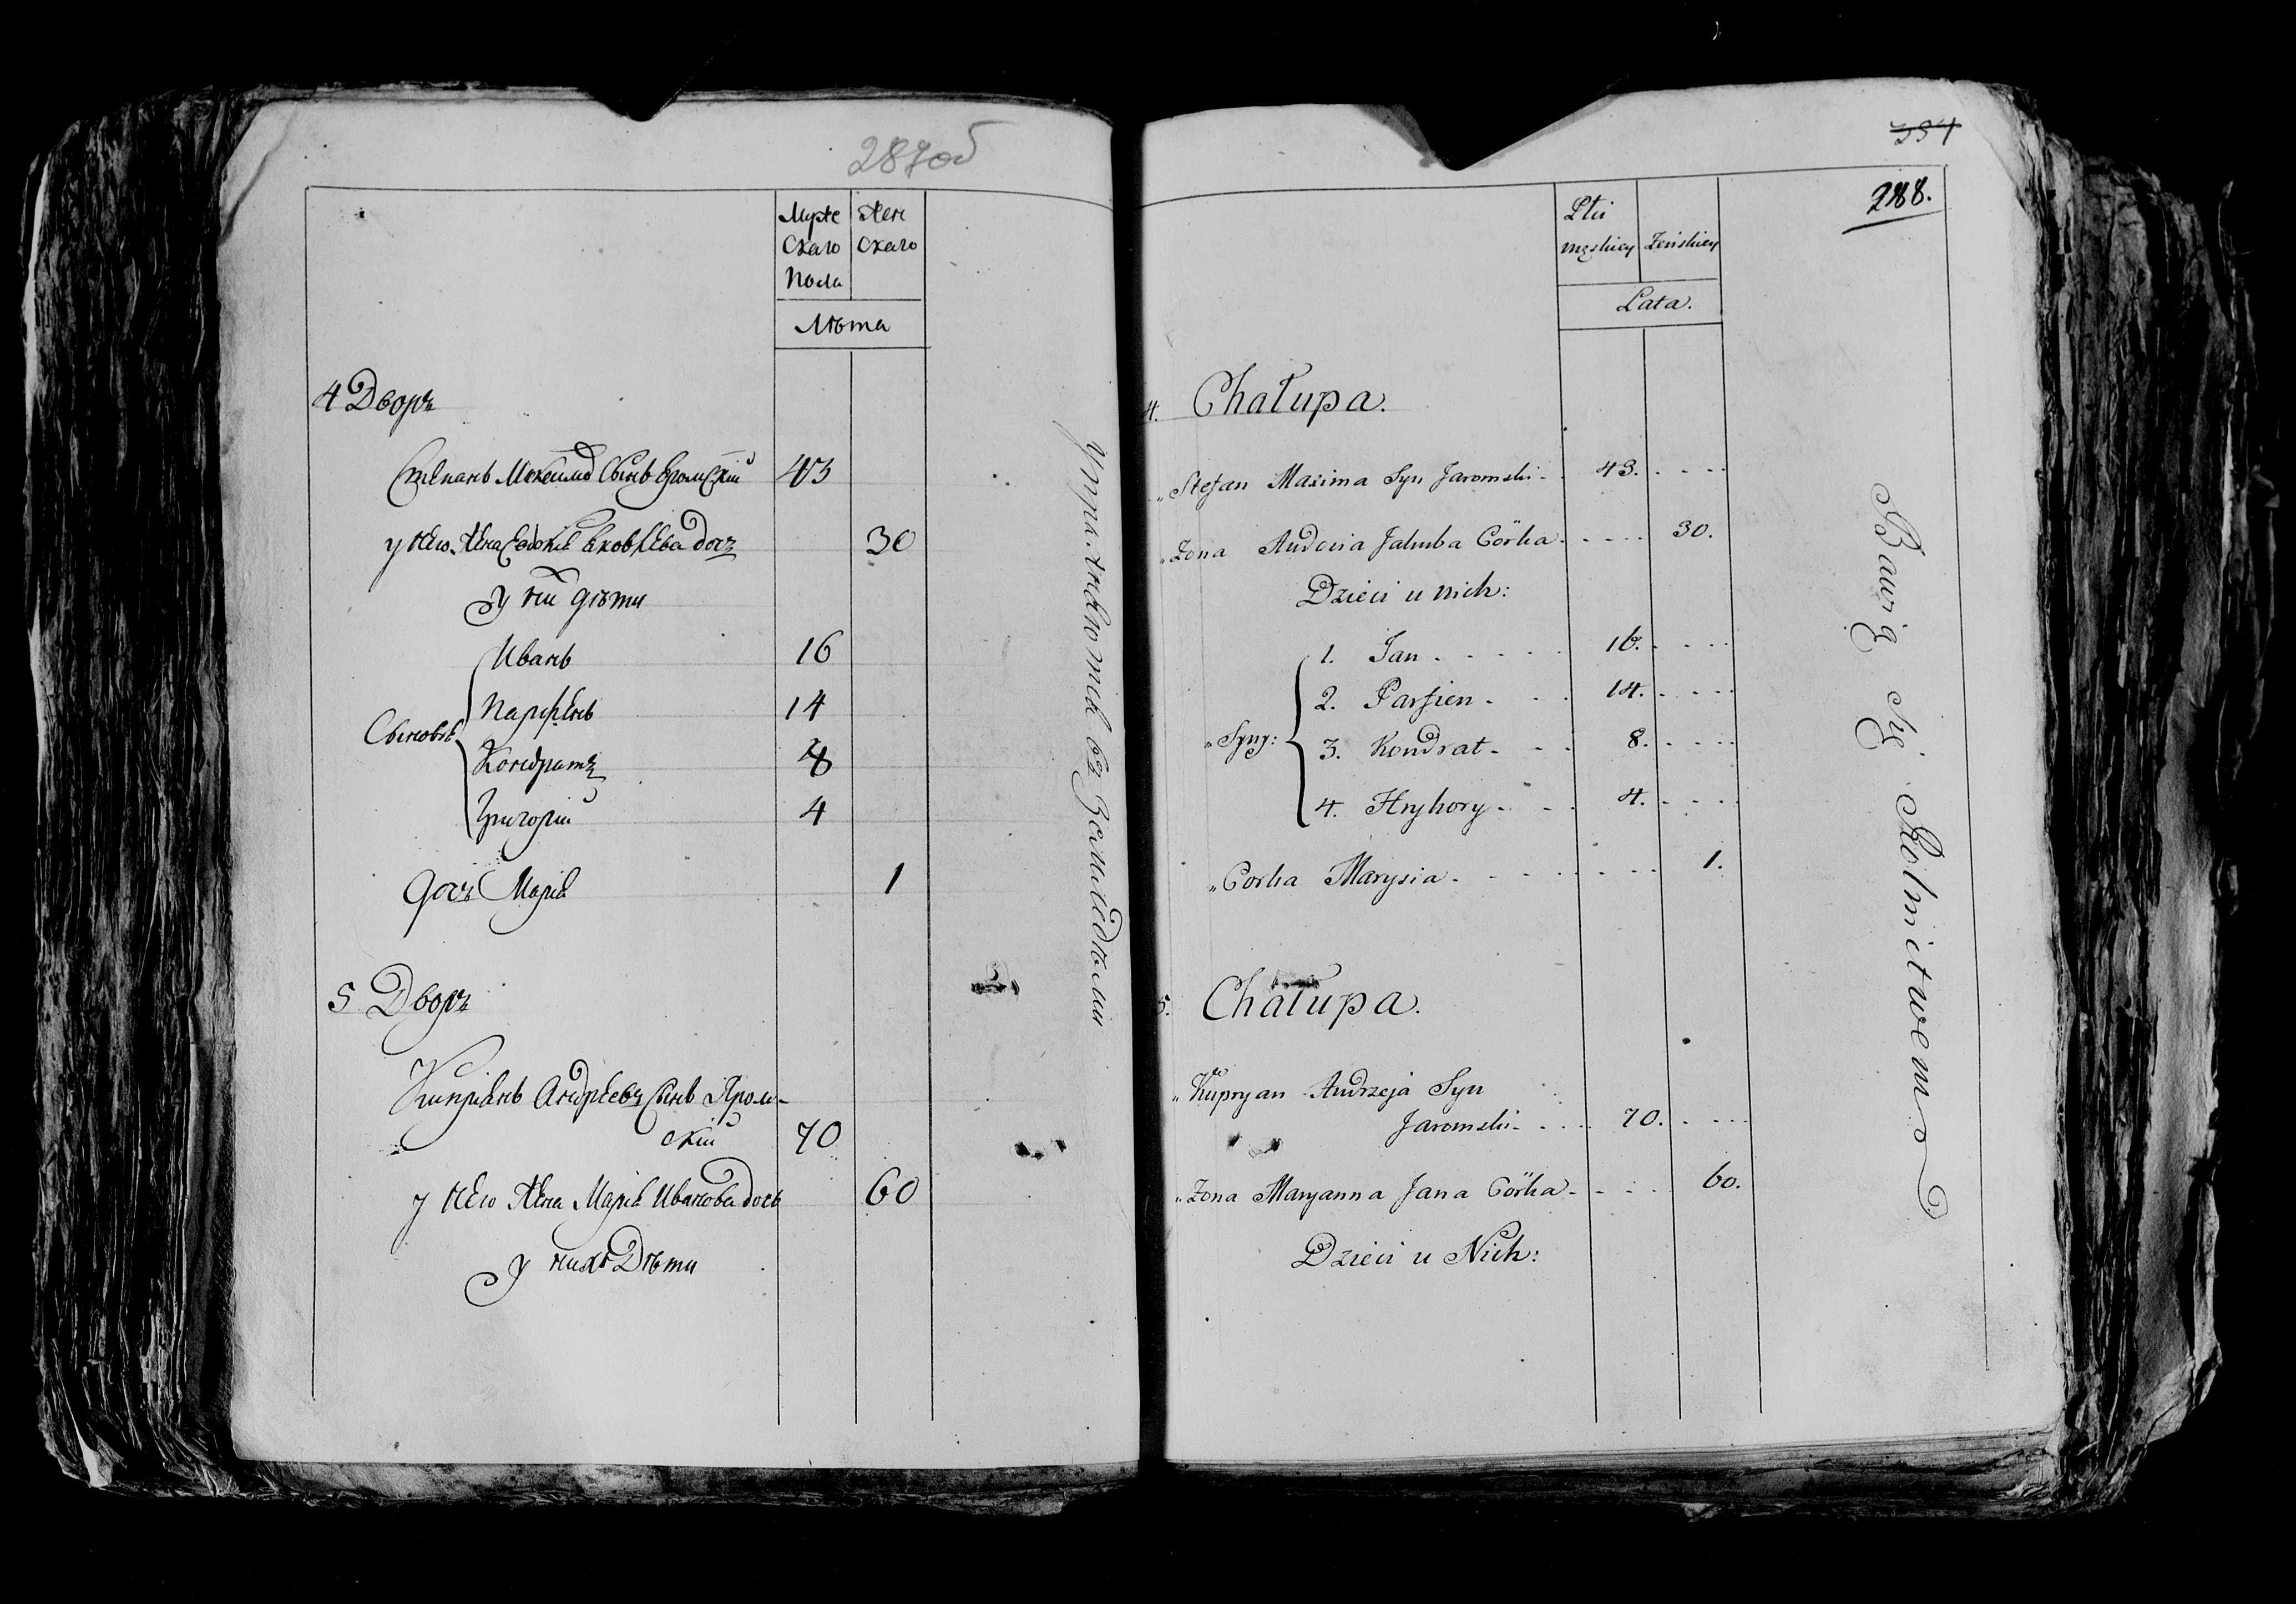 287об
Муже Жен
Скаго Скаго
Пола
Лѣта
4 Дворъ
Степанъ Максимо Сынъ Яромскій 43
у него Жена Евдокія Яковлева дочъ 30
у ни дѣти
Сыновья
Иванъ 16
Парфенъ 14
Кондратъ 8
Григорій 4
дочъ Марія 1
5 Дворъ
Кипріянъ Андреевъ Сынъ Яром-
скій 70
у него Жена Марія Иванова дочь 60
у нихъ Дѣти
Упражняются въ Земледѣліи
354
288.
Płci
męskiey Żeńskiey
Lata.
4. Chałupa.
„ Stefan Maxima Syn Jaromski 43.
„ Żona Audocia Jakuba Córka 30.
Dzieci u nich:
„ Syny:
1. Jan 16.
2. Parfien 14.
3. Kondrat 8.
4. Hryhory 4.
„ Corka Marysia 1.
5. Chałupa.
„ Kupryan Andrzeja Syn
Jaromski 70.
„ Żona Maryanna Jana Córka 60.
Dzieci u Nich:
Bawią się Rolnictwem